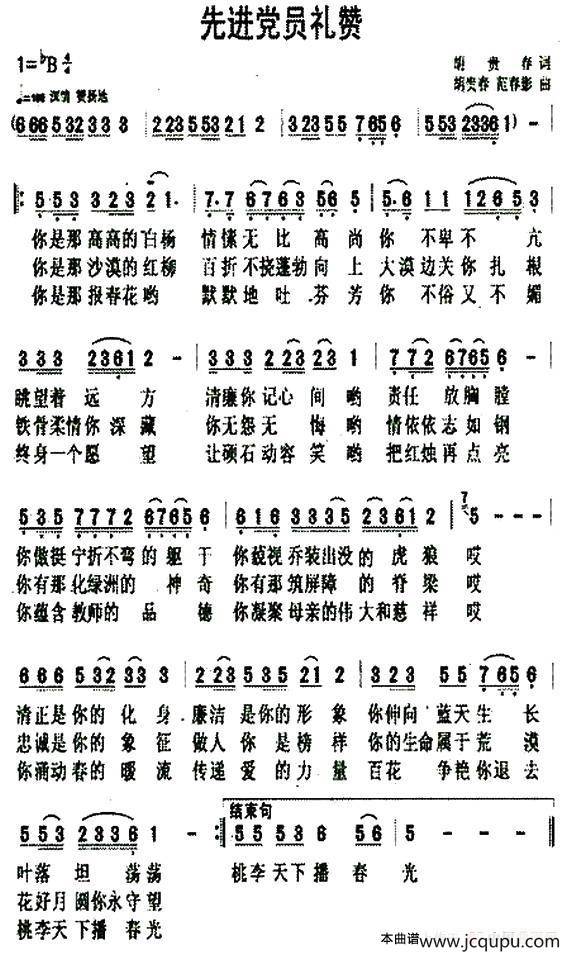 先进党员礼赞
1=♭B 4/4
胡贵春 词
胡贵春 范春影 曲
深情 赞扬地
(6 6 6 5 3 2 3 3 3 | 2 2 3 5 5 3 2 1 2 | 3 2 3 5 5 7 6 5 6 | 5 5 3 2 3 3 6 1) -
5 5 3 3 2 3 2 1. | 7. 7 6 7 6 3 5 6 5 | 5. 6 1 1 1 2 6 5 3
你是那高高的白杨 情愫无比高尚你 不卑不 亢
你是那沙漠的红柳 百折不挠蓬勃向上 大漠边关你扎根
你是那报春花哟 默默地吐芬芳你 不俗又不媚
3 3 3 2 3 6 1 2 - | 3 3 3 2 2 3 2 3 1 | 7 7 2 6 7 6 5 6 -
眺望着 远 方 清廉你记心 间哟 责任 放胸膛
铁骨柔情你深藏 你无怨无 悔哟 情依依志如钢
终身一个愿 望 让顽石动容笑哟 把红烛再点亮
5 3 5 7 7 7 2 6 7 6 5 6 | 6 1 6 3 3 3 5 2 3 6 1 2 | 7 5 - -
你傲挺宁折不弯的躯干 你藐视乔装出没的虎狼哎
你有那化绿洲的 神奇 你有那筑屏障的 脊梁哎
你蕴含教师的 品 德 你凝聚母亲的伟大和慈祥哎
6 6 6 5 3 2 3 3 3 | 2 2 3 5 3 5 2 1 2 | 3 2 3 5 5 7 6 5 6
清正是你的 化 身 廉洁 是你的形 象 你伸向 蓝天生 长
忠诚是你的 象 征 做人 你 是榜 样 你的生命属于荒 漠
你涌动春的 暖 流 传递 爱 的力 量 百花 争艳你退去
5 5 3 2 3 3 6 1 - | 结束句 5 5 5 3 5 6 5 6 | 5 - - -
叶落 坦 荡荡 桃李天下播 春 光
花好月圆你永守望
桃李天下播 春光
本曲谱上传于
www.jcqupu.com